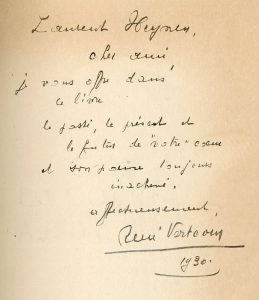 Laurent Heynen,
cher ami,
je vous offre dans
ce livre
le passé, le présent et
le futur de "votre" cœur
et son poème toujours
inachevé.
affectueusement,
René Verboom
1930.